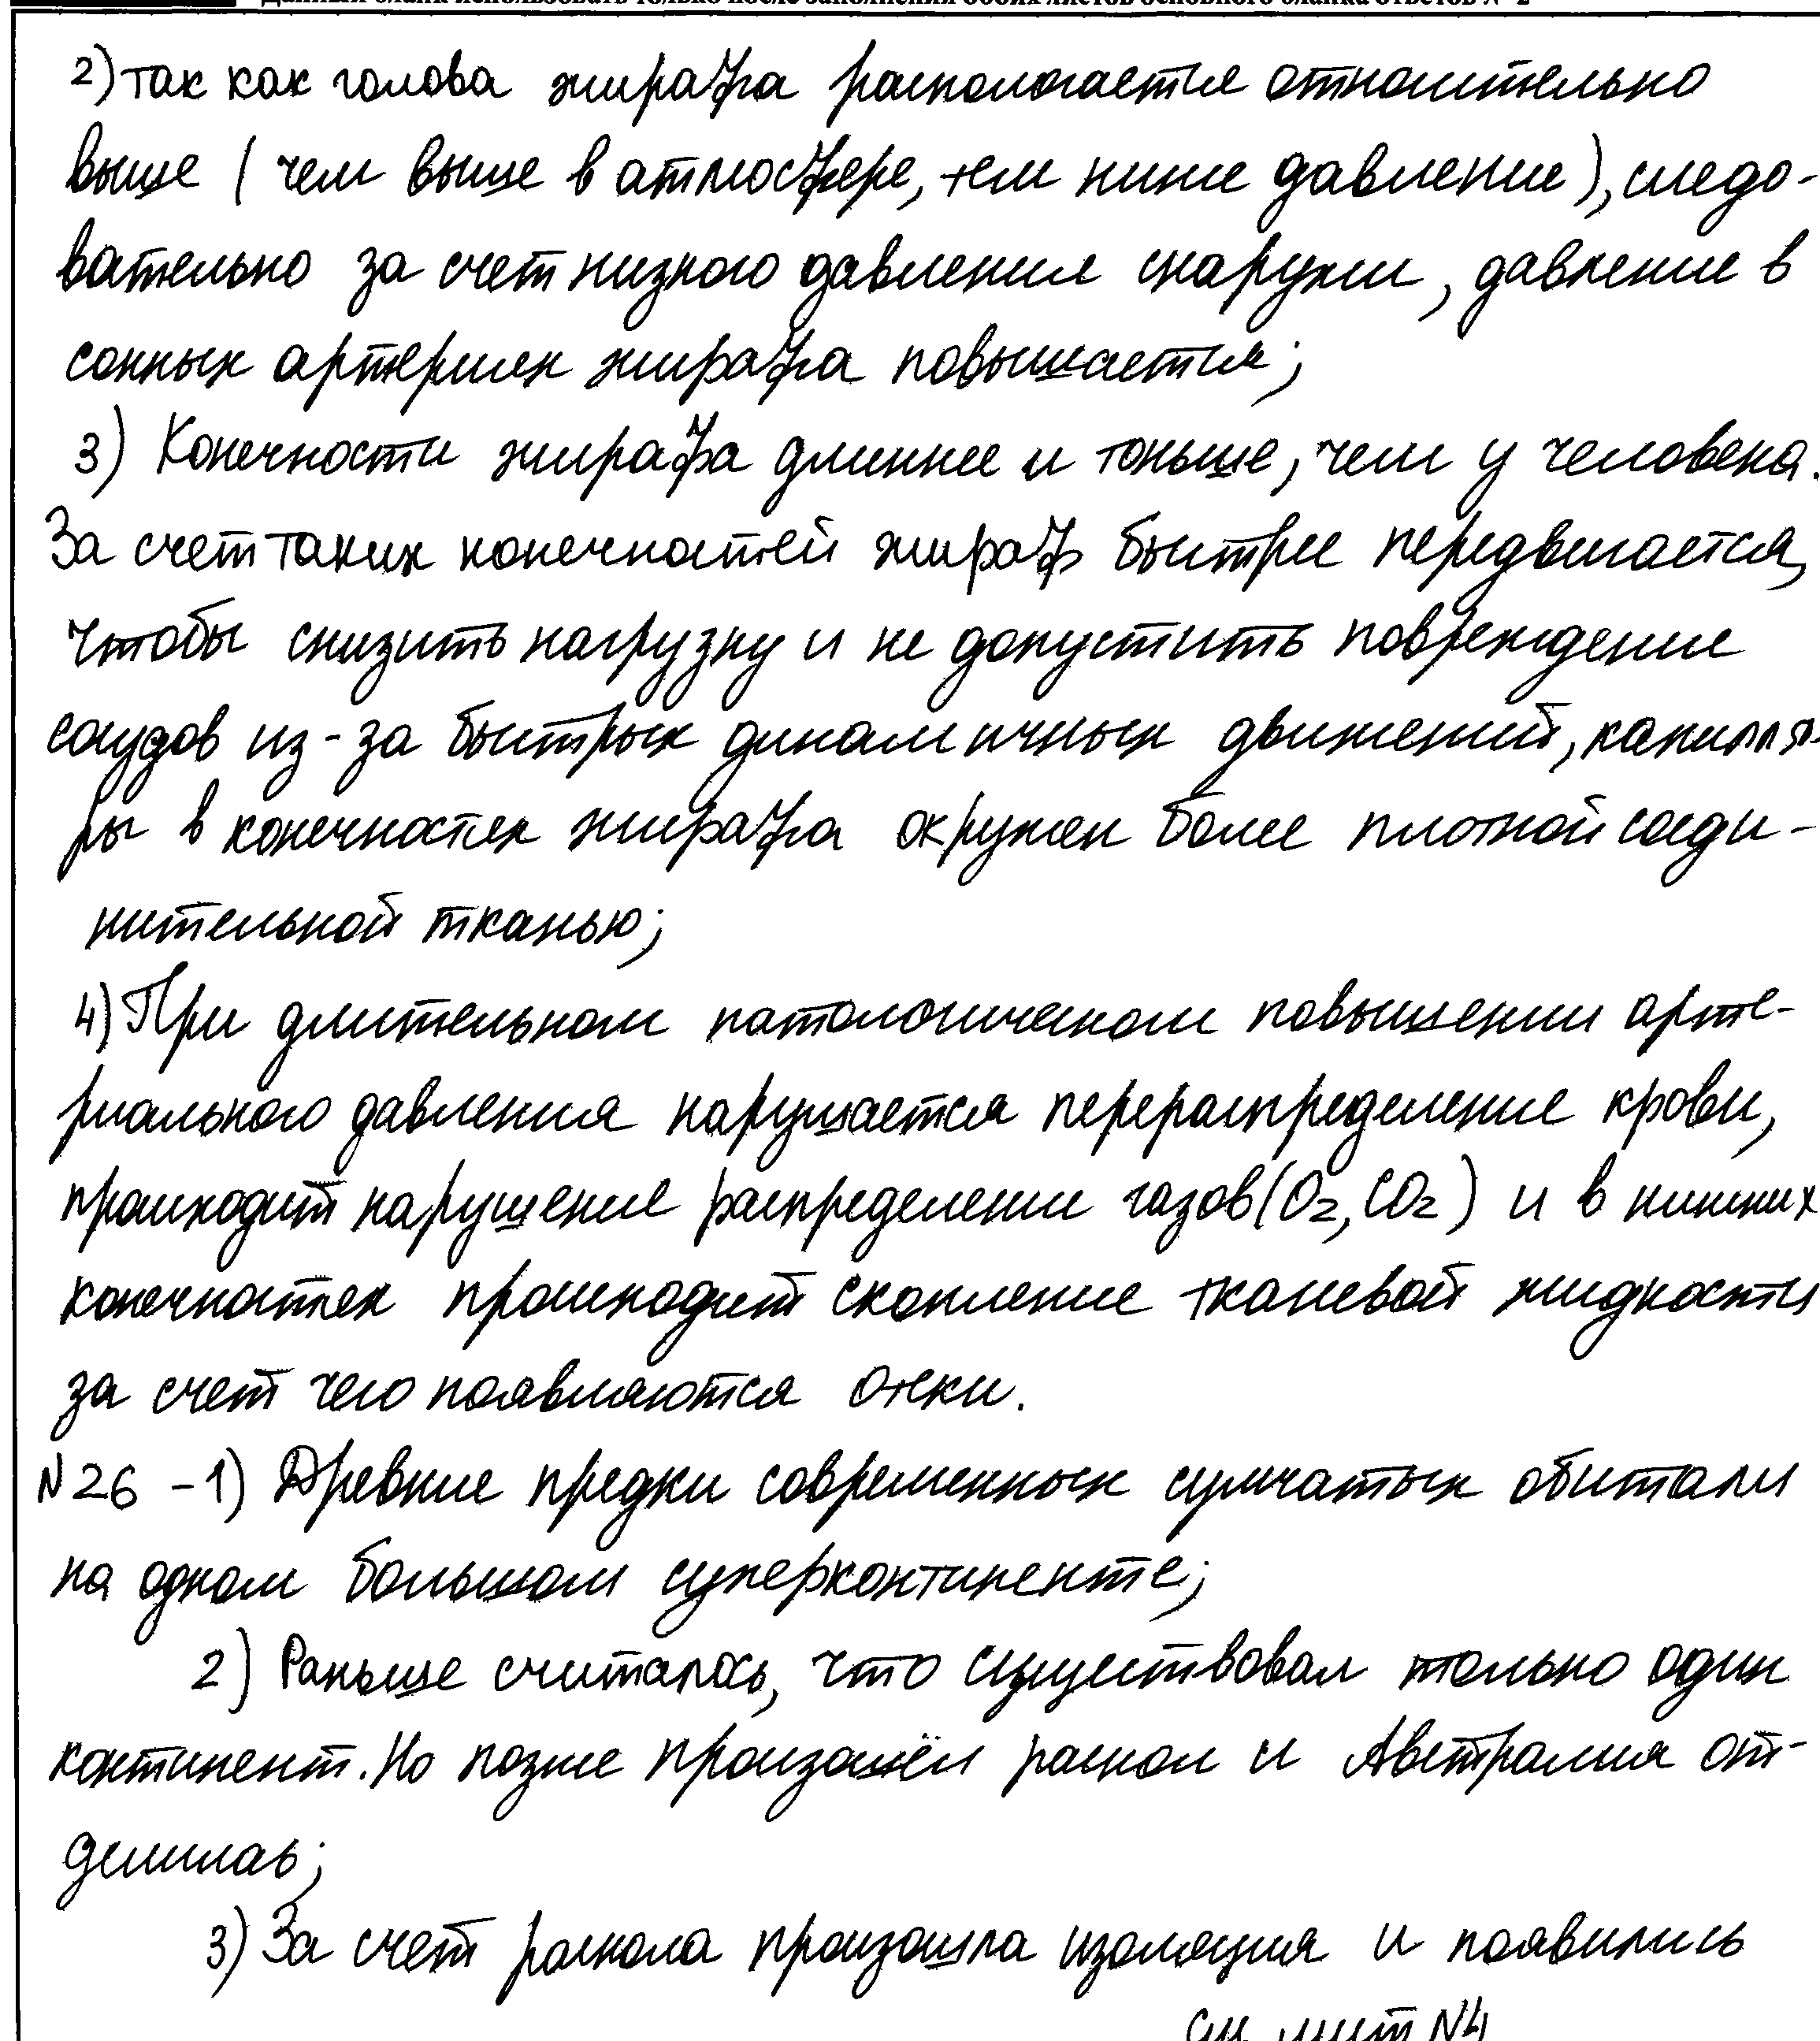 Данный бланк использовать только после заполнения обоих листов основного бланка ответов № 2
2) так как голова жирафа распологается относительно
выше (чем выше в атмосфере, тем ниже давление), следо-
вательно за счет низкого давления снаружи, давление в
сонных артериях жирафа повышается;
3) Конечности жирафа длиннее и тоньше, чем у человека.
За счет таких конечностей жираф быстрее передвигается,
чтобы снизить нагрузку и не допустить повреждение
сосудов из-за быстрых динамичных движений, капилля-
ры в конечностях жирафа окружен более плотной соеди-
нительной тканью;
4) При длительном патологическом повышении арте-
риального давления нарушается перераспределение крови,
происходит нарушение распределении газов (O2, CO2) и в нижних
конечностях происходит скопление тканевой жидкости
за счет чего появляются отеки.
N26 - 1) Древние предки современных сумчатых обитали
на одном большом суперконтиненте;
2) Раньше считалось, что существовал только один
континент. Но позже произошёл раскол и Австралия от-
делилась;
3) За счет раскола произошла изоляция и появились
см лист N4